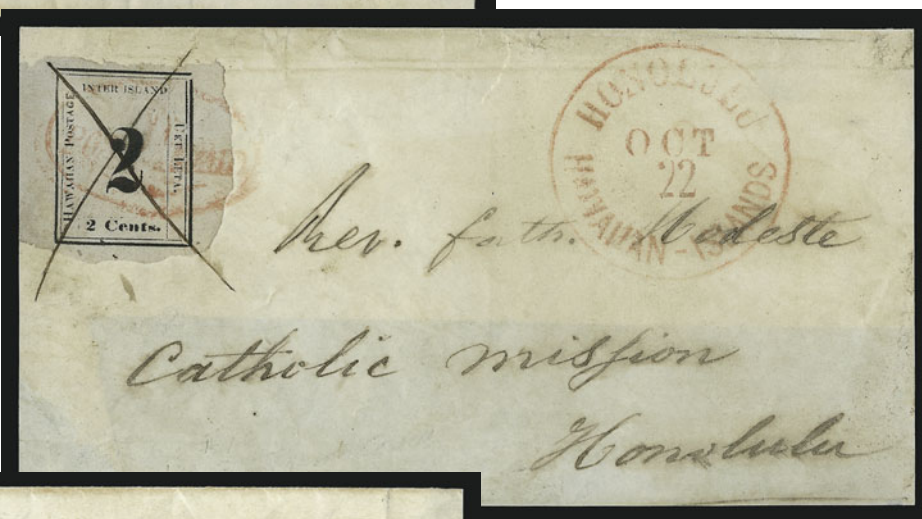 INTER ISLAND
HAWAIIAN POSTAGE
UKU LETA.
2
2 Cents.
HONOLULU
OCT
22
HAWAIIAN-ISLANDS
Rev. fath. Modeste
Catholic mission
Honolulu